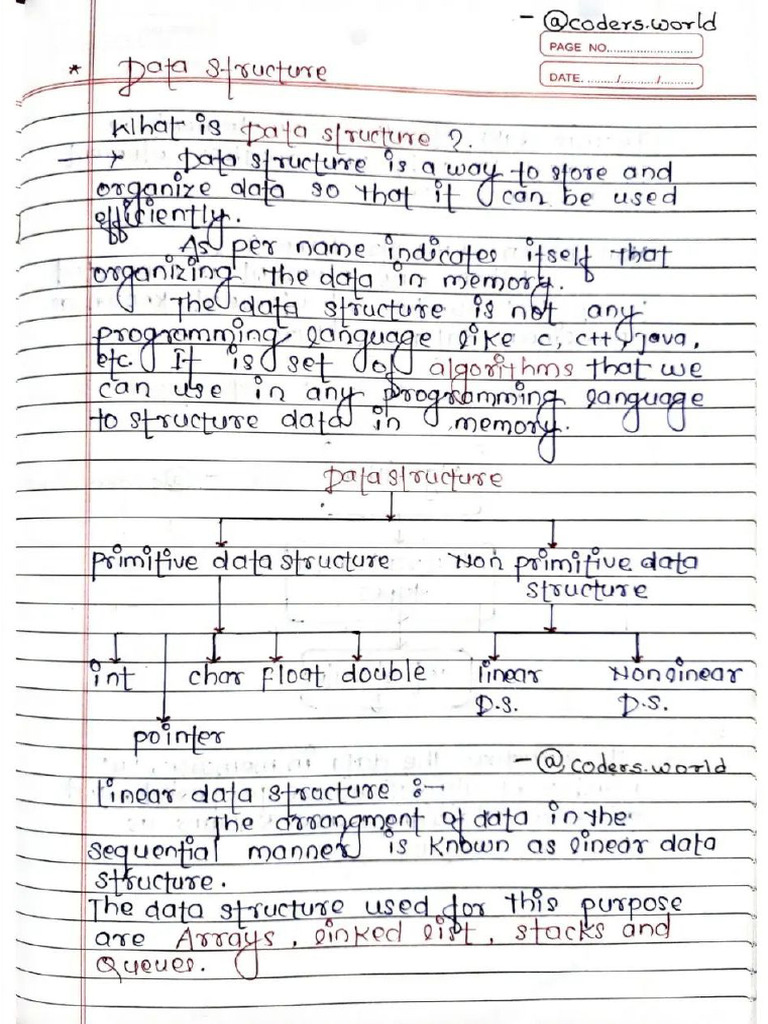 - @coders.world
PAGE NO...........................
DATE. ........./.........../..........
* Data structure
What is Data structure ?.
→ Data structure is a way to store and
organize data so that it can be used
efficiently.
As per name indicates itself that
organizing the data in memory.
The data structure is not any
programming language like c, c++, java,
etc. It is set of algorithms that we
can use in any programming language
to structure data in memory.
Data structure
Primitive data structure Non primitive data
structure
int char float double linear Non linear
D.S. D.S.
pointer
- @coders.world
Linear data structure :-
The arrangment of data in the
sequential manner is known as linear data
structure.
The data structure used for this purpose
are Arrays, linked list, stacks and
Queues.